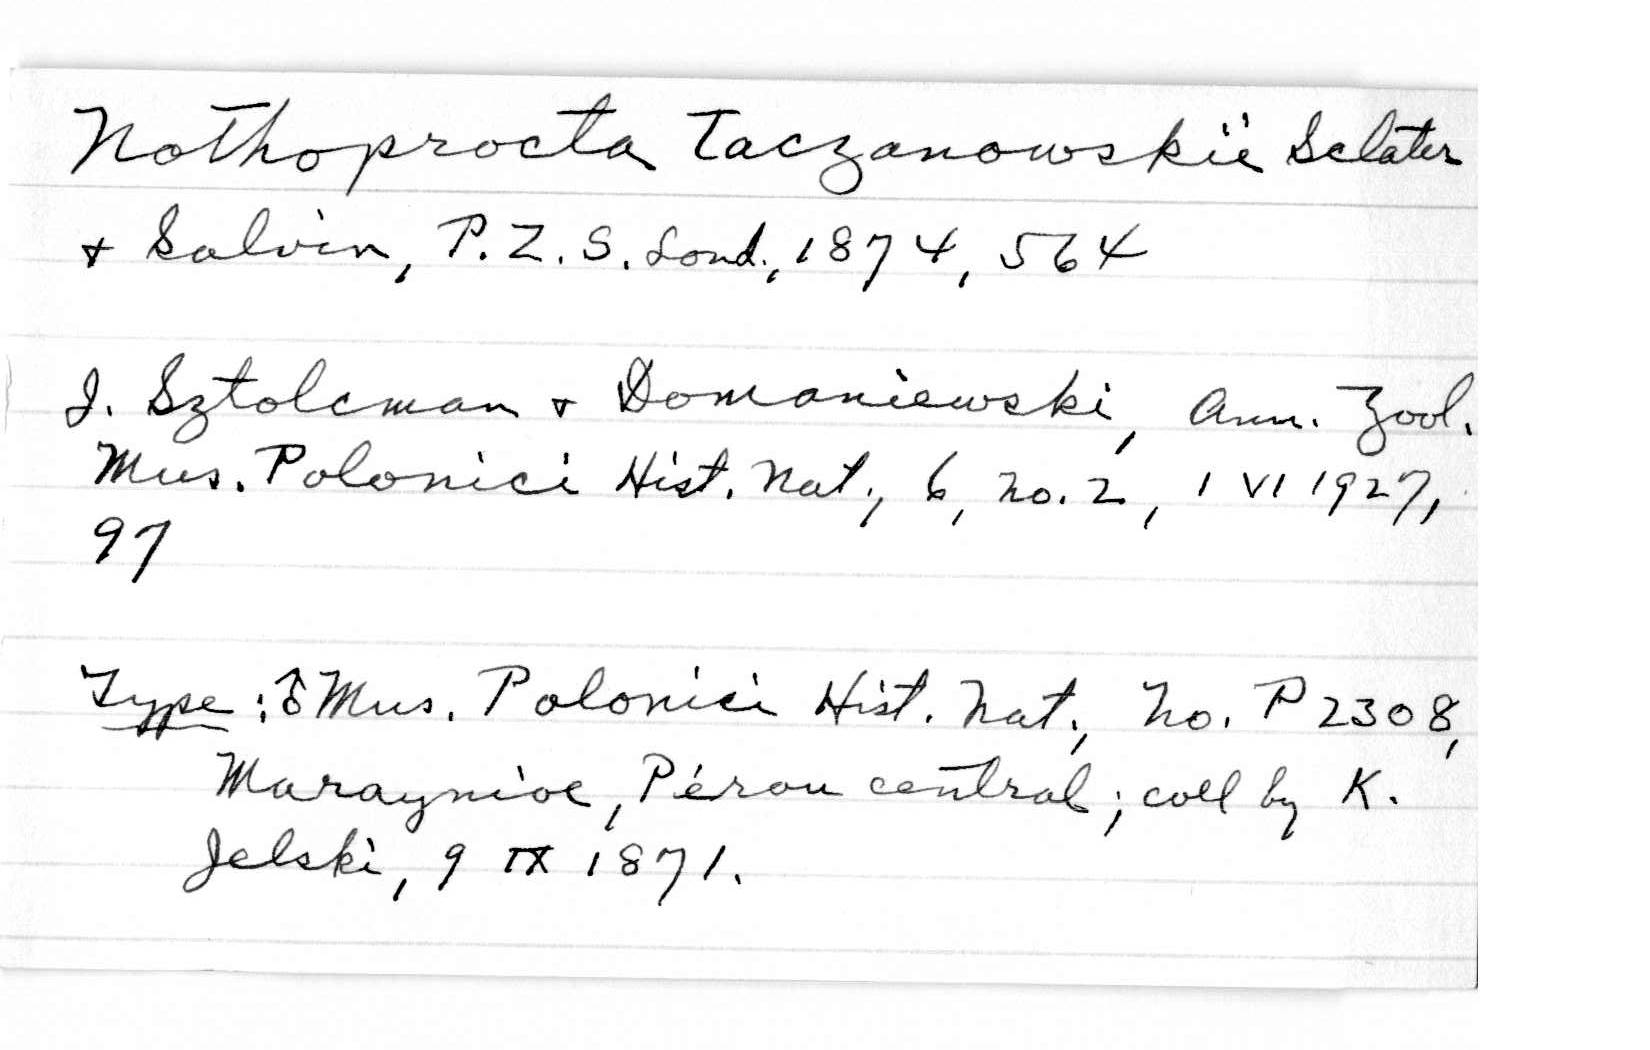 Nothoprocta Taczanowskii Sclater
+ Salvin, P. Z. S. Lond., 1874, 564
J. Sztolcman + Domaniewski, Ann. Zool.
Mus. Polonici Hist. Nat., 6, no. 2, 1 VI 1927,
97
Type: ♂ Mus. Polonici Hist. Nat., No. P2308,
Maraynioc, Pérou central; coll by K.
Jelski, 9 IX 1871.